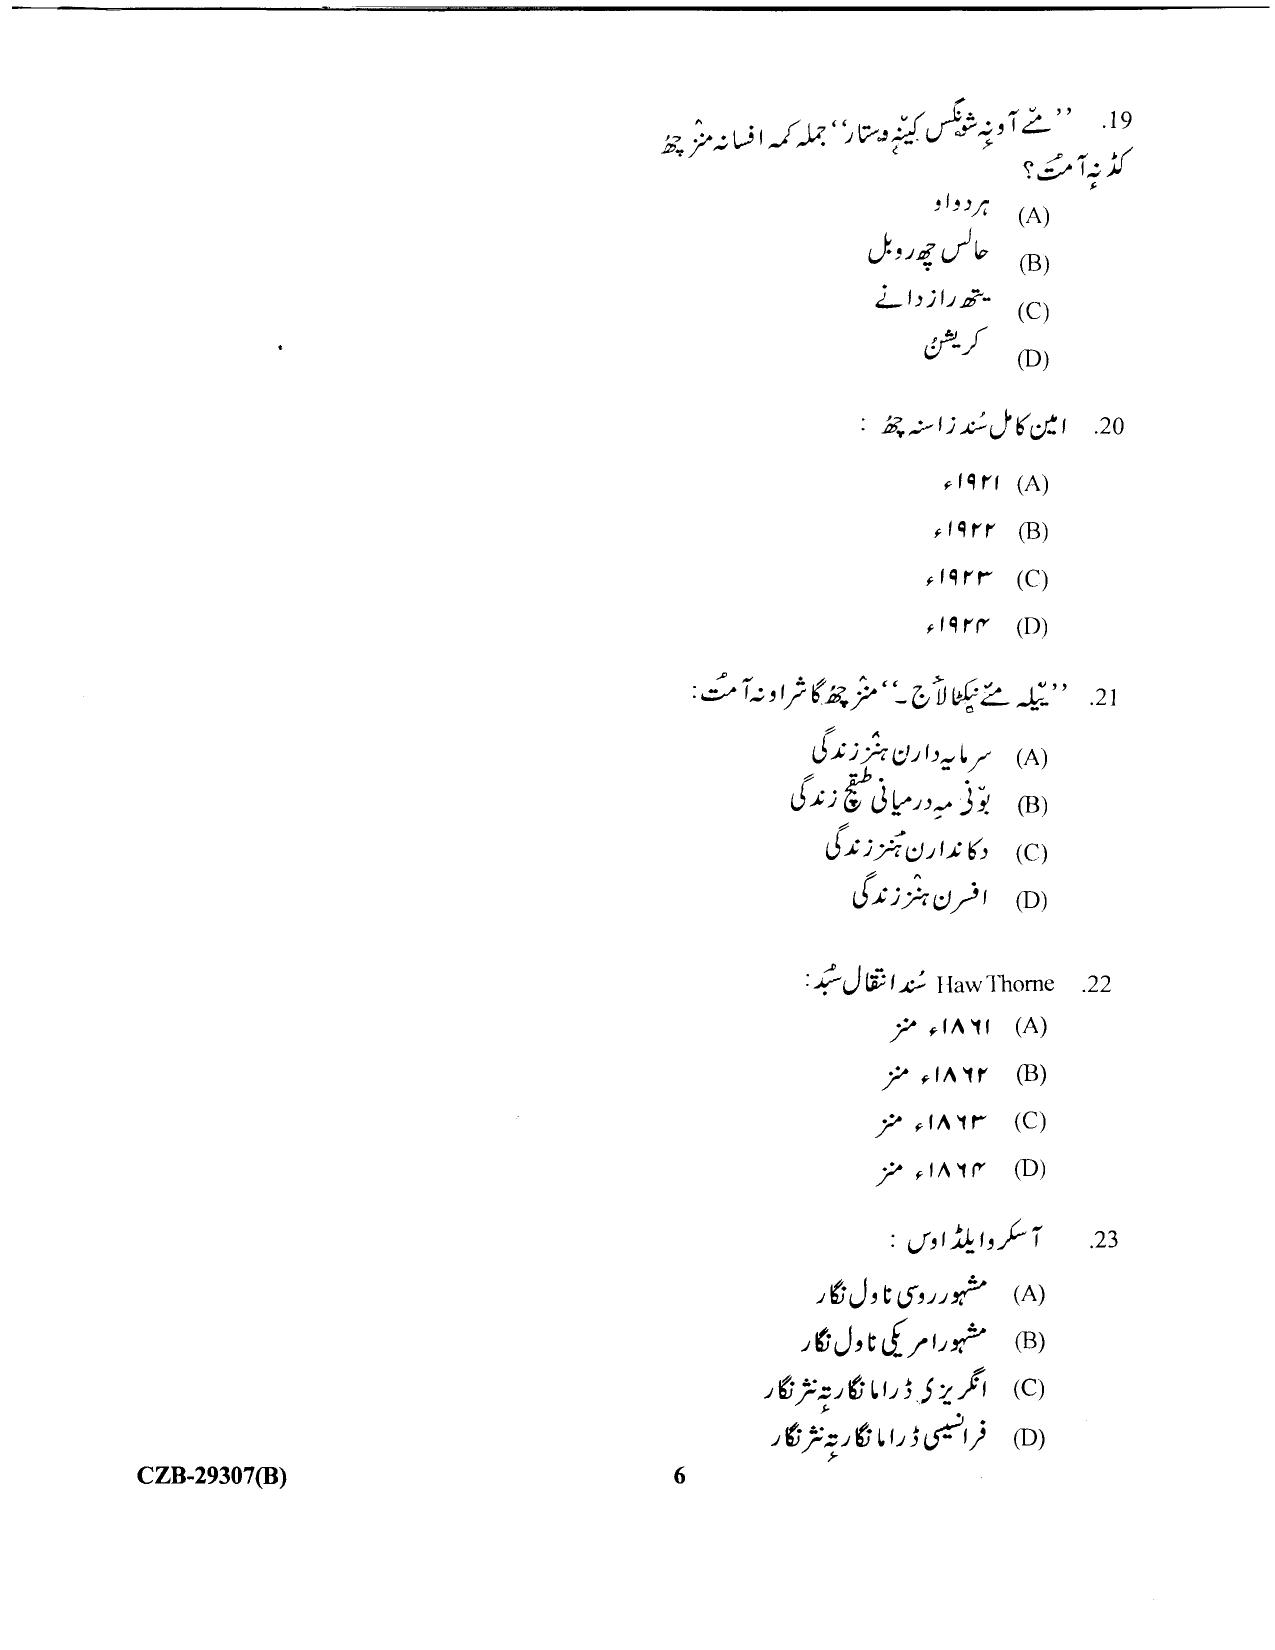 19. ’’مےٚ آو نہٕ شونگس کینٛہہ وستار‘‘ جملہ کمہ افسانہ منٛز چھُ
کڈنہٕ آمت؟
(A) ہردواو
(B) حالس چھ روبل
(C) یتھ راز دانے
(D) کریشُن
20. امین کامل سُند زاسنہ چھُ :
(A) ۱۹۲۱ء
(B) ۱۹۲۲ء
(C) ۱۹۲۳ء
(D) ۱۹۲۴ء
21. ’’یٚیلہ مےٚ نیٖکٹا لٲج۔‘‘ منٛز چھُ گاشراونہ آمت:
(A) سرمایہ دارن ہنٛز زندگی
(B) بوٚنی مہٕ درمیانی طبقٕچ زندگی
(C) دکاندارن ہنٛز زندگی
(D) افسرن ہنٛز زندگی
22. Haw Thorne سُند انتقال سپُد:
(A) ۱۸۶۱ء منز
(B) ۱۸۶۲ء منز
(C) ۱۸۶۳ء منز
(D) ۱۸۶۴ء منز
23. آسکر وایلڈ اوس :
(A) مشہور روسی ناول نگار
(B) مشہور امریکی ناول نگار
(C) انگریزی ڈراما نگار تہٕ نثر نگار
(D) فرانسیسی ڈراما نگار تہٕ نثر نگار
CZB-29307(B) 6